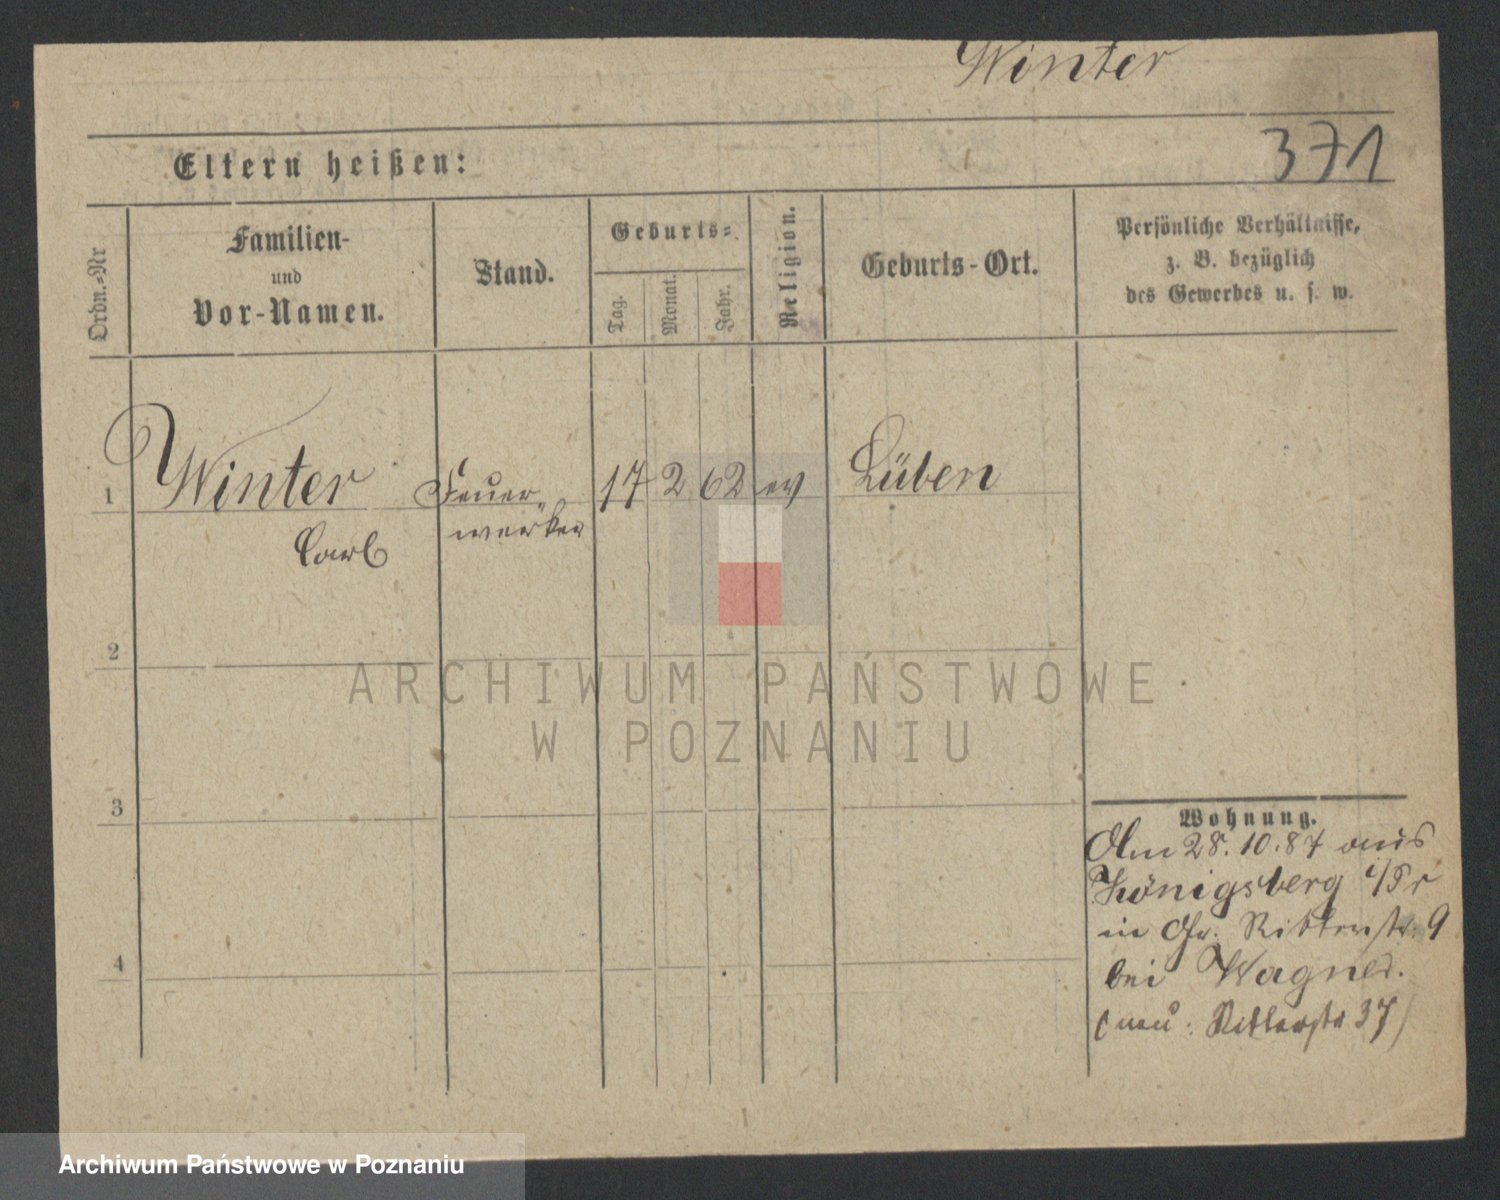 Winter
371
Eltern heißen:
Ordn.-Nr
Familien-
und
Vor-Namen.
Stand.
Geburts-
Tag.
Monat.
Jahr.
Religion.
Geburts-Ort.
Persönliche Verhältnisse,
z. B. bezüglich
des Gewerbes u. s. w.
1 Winter Feuer- 17 2 62 ev Lüben
Carl werker
2
3
4
Wohnung.
Am 28.10.87 aus
Königsberg i/Pr
in Gr. Ritterstr. 9
bei Wagner.
(neu: Ritterstr 37)
ARCHIWUM PAŃSTWOWE
W POZNANIU
Archiwum Państwowe w Poznaniu